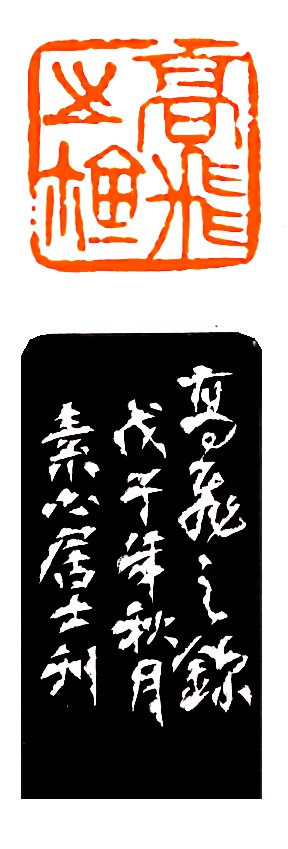 高飛
之鉨
高飛之鉨
戊子年秋月
素心居士刊